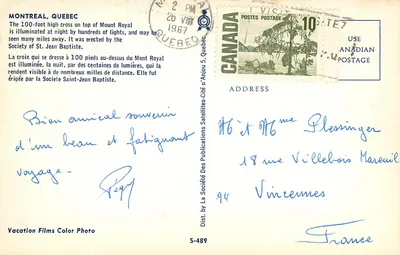 MONTREAL, QUEBEC
The 100-foot high cross on top of Mount Royal
is illuminated at night by hundreds of lights, and may be
seen many miles away. It was erected by the
Society of St. Jean Baptiste.
La croix qui se dresse à 100 pieds au-dessus du Mont Royal
est illuminée, la nuit, par des centaines de lumières, qui la
rendent visible à de nombreux milles de distance. Elle fut
érigée par la Société Saint-Jean Baptiste.
Bien amical souvenir
d'un beau et fatigant
voyage.
Vacation Films Color Photo
S-489
Dist. by La Société des Publications Satellites-Cité d'Anjou 5, Quebec
2 PM
20 VIII
1967
QUEBEC
CANADA
POSTES POSTAGE
10¢
USE
CANADIAN
POSTAGE
ADDRESS
M et Mme Plessinger
18 rue Villebois Mareuil
94 Vincennes
France